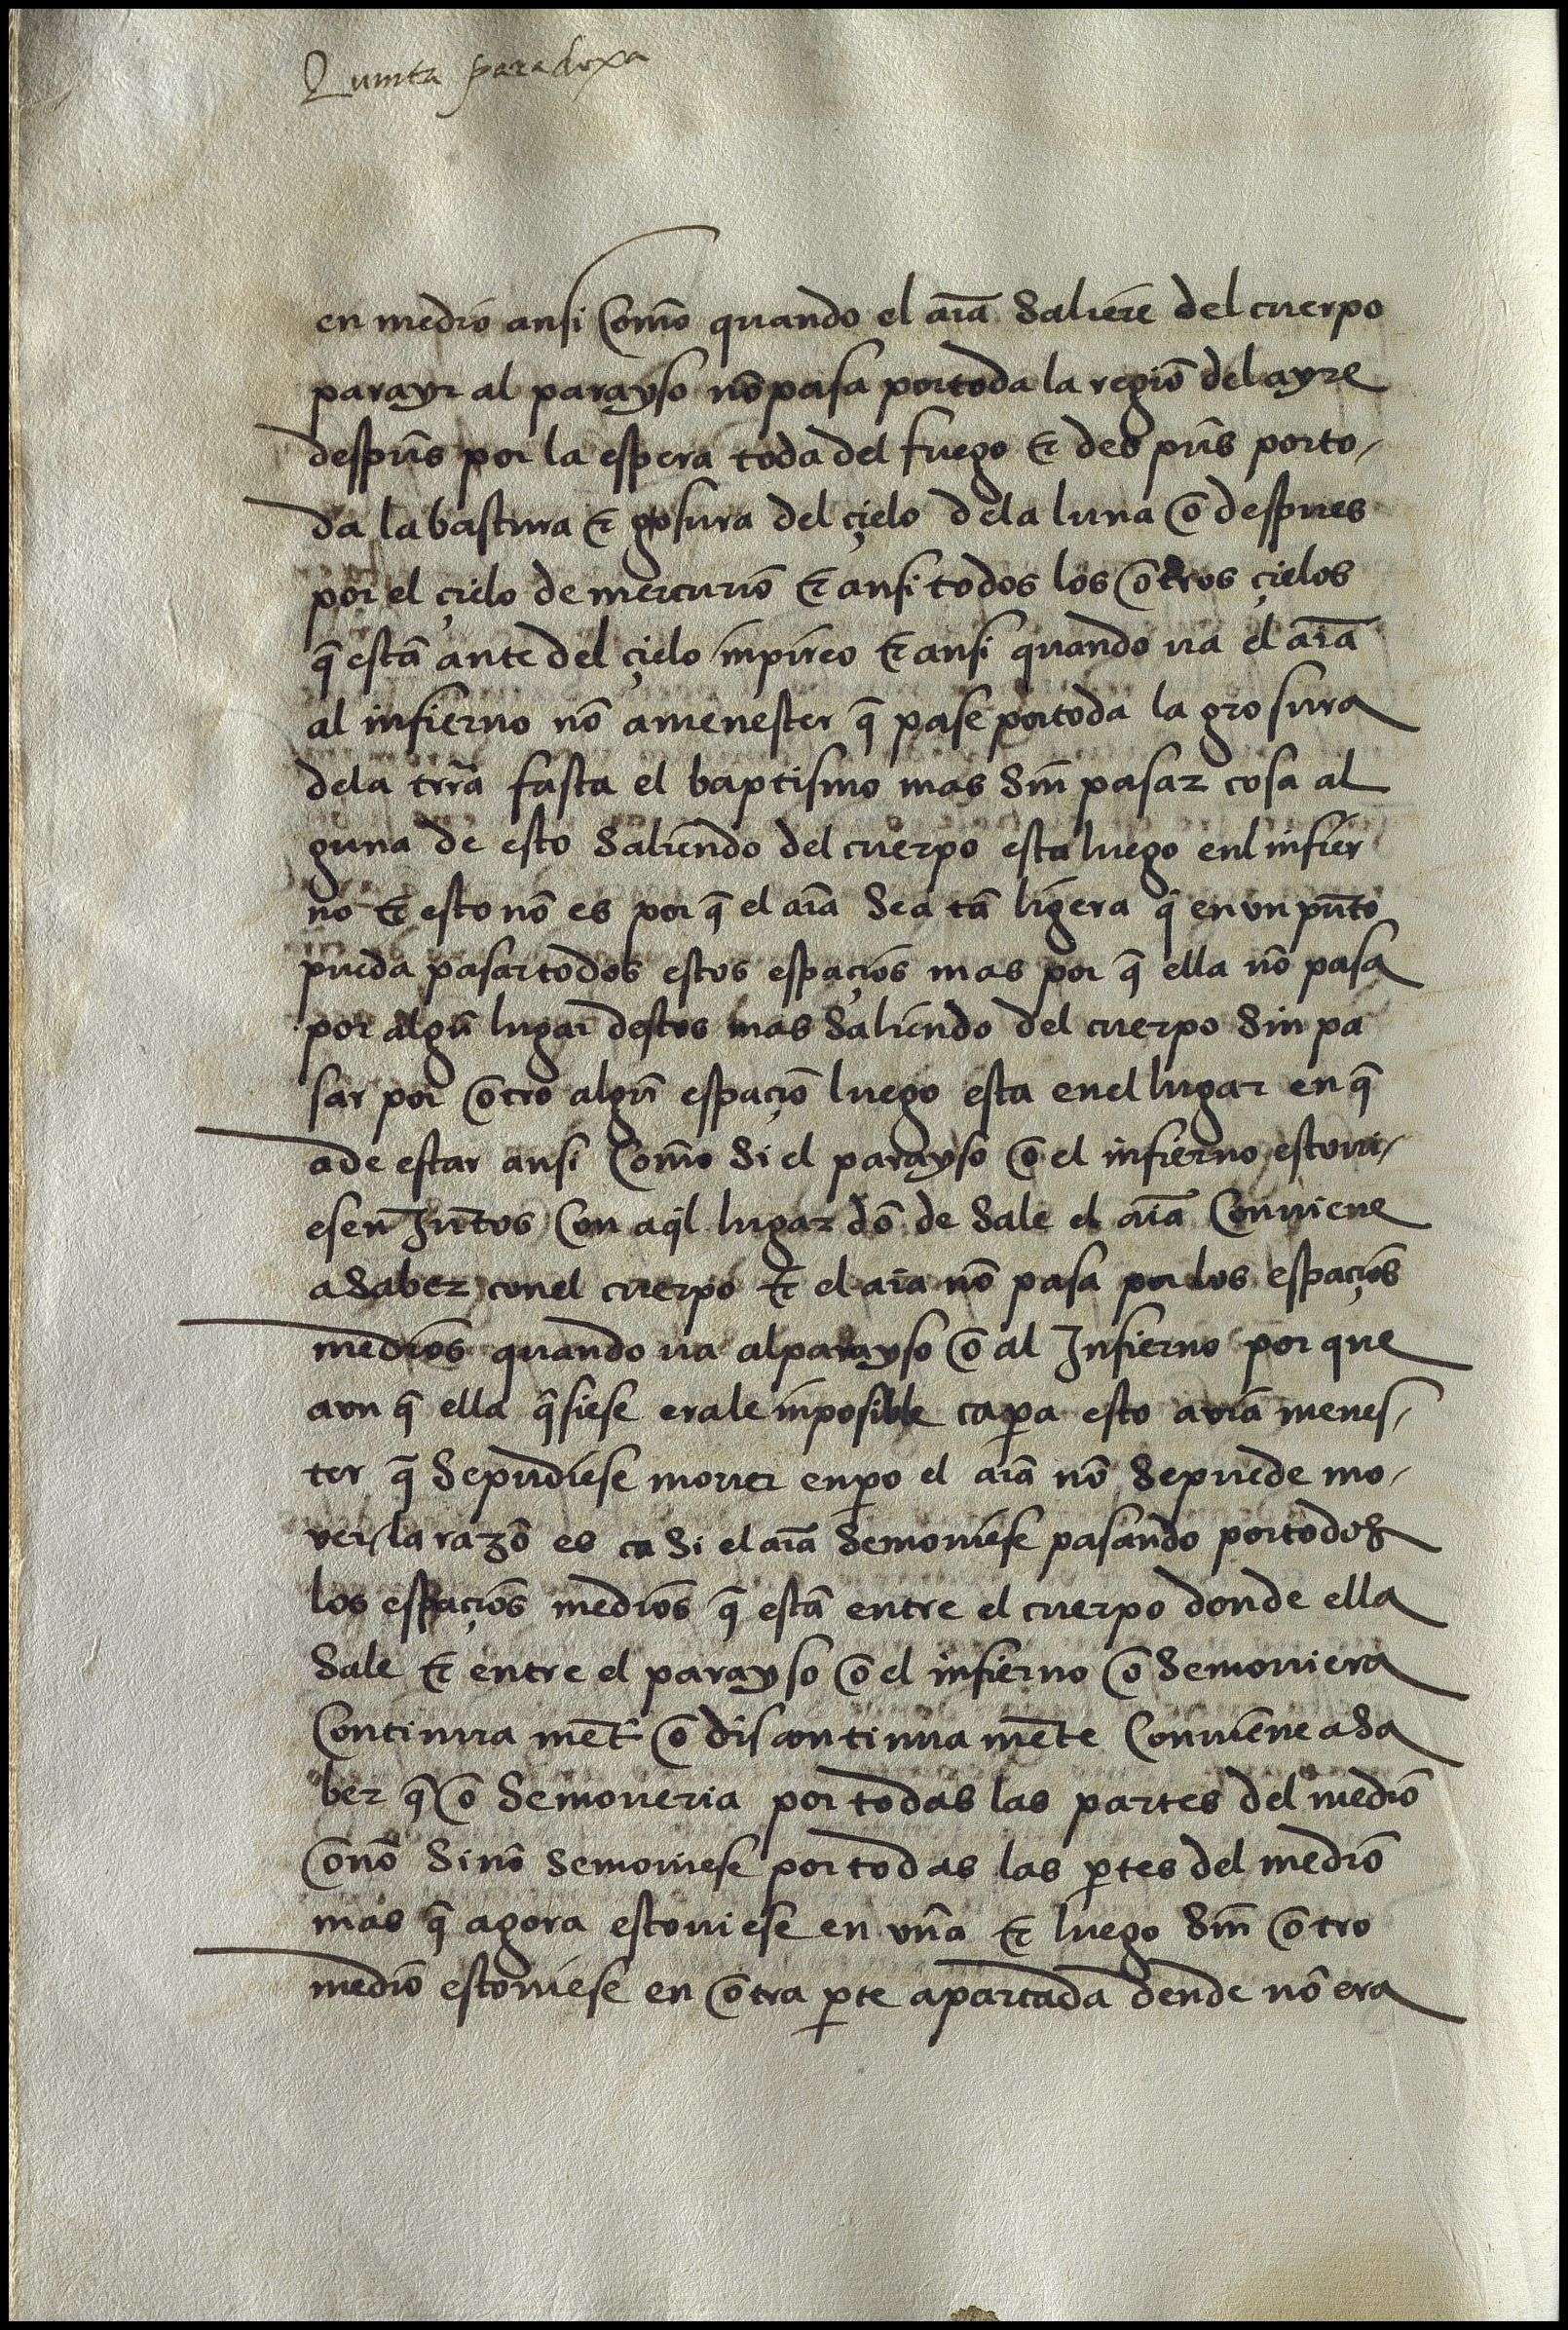 Quinta paradoxa
en medio ansi com̃o quando el aĩa saliere del cuerpo
parayr al parayso nõ pasa portoda la regiõ del ayre
despũs por la espera toda del fuego & des pũs porto-
da la bastura & grosura del çielo dela luna o despues
por el çielo de mercurio & ansi todos los otros çielos
q̃ estã ante del çielo inpireo & ansi quando ua el aĩa
al infierno nõ amenester q̃ pase portoda la grosura
dela trr̃a fasta el baptismo mas sin̄ pasar cosa al
guna de esto saliendo del cuerpo esta luego enl infier
no & esto nõ es por q̃ el aĩa sea tã ligera q̃ en vn pũto
pueda pasar todos estos espaçios mas por q̃ ella nõ pasa
por algũ lugar destos mas saliendo del cuerpo sin pa
sar por otro algũ espaçio luego esta enel lugar en q̃
ade estar ansi com̃o si el parayso o el infierno estoui-
esen Jũtos con aq̃l lugar dõ de sale el aĩa conuiene
asaber conel cuerpo & el aĩa nõ pasa por los espaçios
medios quando ua alparayso o al Infierno por que
aun q̃ ella q̃siese erale inposible ca pa esto auiã menes-
ter q̃ sepudiese mouer enpo el aĩa nõ sepuede mo-
uer / la razõ es ca si el aĩa semouiese pasando por todos
los espaçios medios q̃ estã entre el cuerpo donde ella
sale & entre el parayso o el infierno o semouiera
continua mẽt o discontinua mẽte conuiene asa
ber q̃ o semoueria por todas las partes del medio
o nõ si nõ semouiese por todas las ptes del medio
mas q̃ agora estouiese en vña & luego sin̄ otro
medio estouiese en otra pte apartada dende nõ era